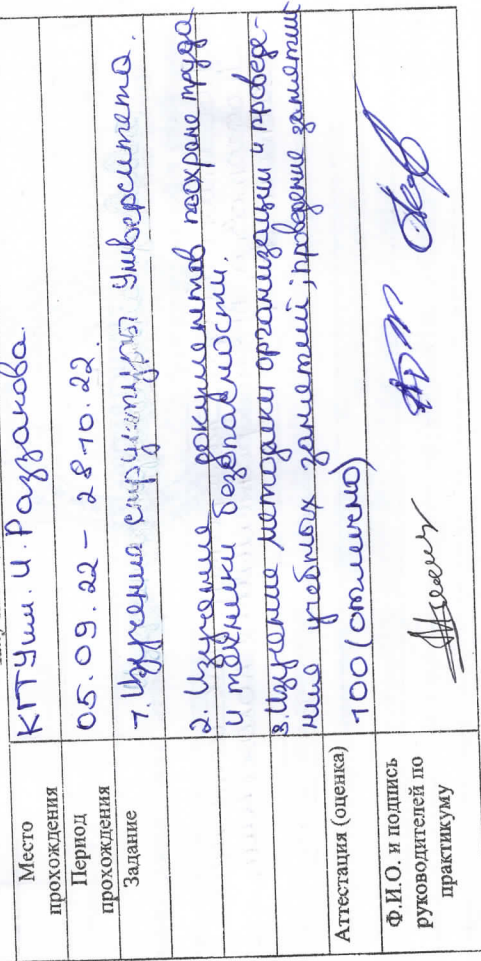 Место
прохождения
КГТУ им. И. Раззакова
Период
прохождения
05.09.22 – 28.10.22.
Задание
1. Изучения структуры Университета.
2. Изучение документов по охране труда
и техники безопасности.
3. Изучение методики организации и проведе-
ния учебных занятий; проведение занятий
Аттестация (оценка)
100 (отлично)
Ф.И.О. и подпись
руководителей по
практикуму